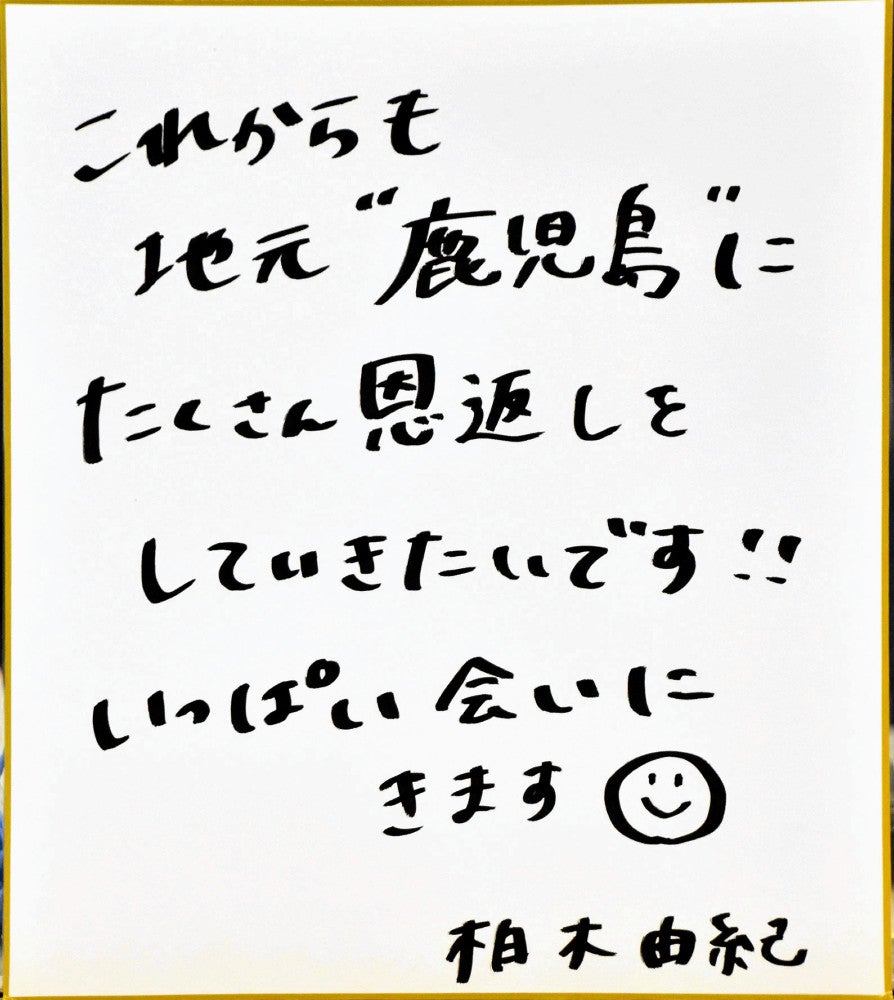 これからも
地元〝鹿児島〟に
たくさん恩返しを
していきたいです!!
いっぱい会いに
きます
柏木由紀